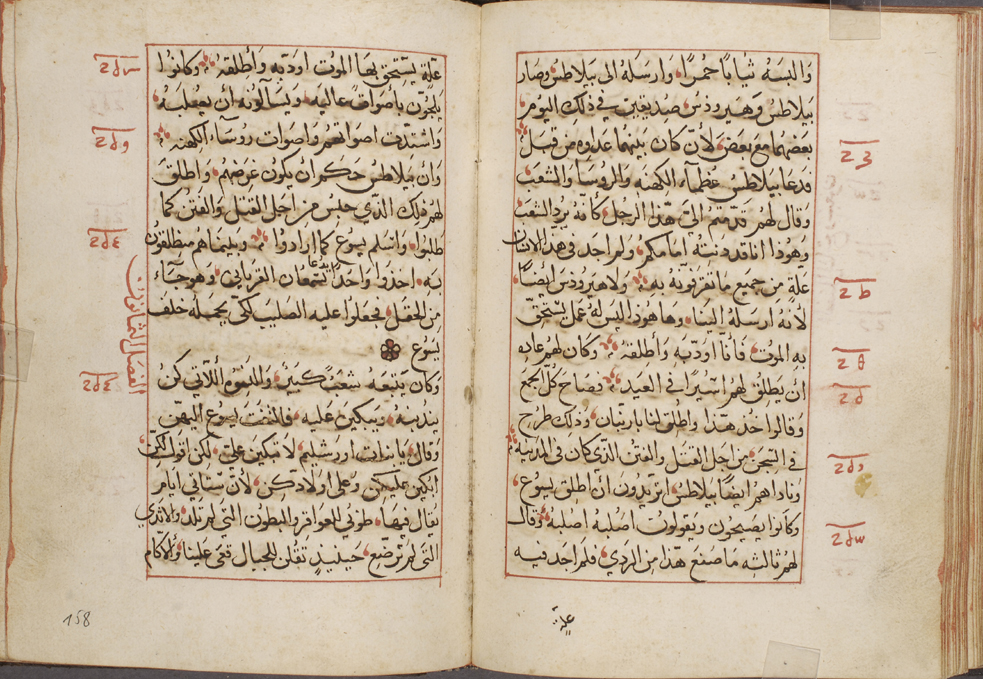 والبسه ثياباً حمراً وارسله الى بيلاطس وصار
بيلاطس وهيرودس صديقين في ذلك اليوم
بعضهما مع بعض لأن كان بينهما عداوه من قبل
فدعا بيلاطس عظماء الكهنه والروسا والشعب
وقال لهم قدمتم الىّ هذا الرجل كانه يرد الشعب
وهوذا انا قد دنيته امامكم ولم اجد في هذا الانسان
علة من جميع ما تقرفونه به ولا هيرودس ايضاً
لانه ارسله الينا وها هوذا ليس له عمل يستحق
به الموت فأنا اودبه وأطلقه وكان لهم عاده
ان يطلق لهم اسيراً في العيد فصاح كل الجمع
وقالوا خذ هذا واطلق لنا باربان وذلك طرح
في السجن من اجل القتل والفتن الذي كان في المدينه
وناداهم ايضاً بيلاطس اتريدون ان اطلق يسوع
وكانوا يصيحون ويقولون اصلبه اصلبه وقال
لهم ثالثه ما صنع هذا من الردي فلم اجد فيه
علة
علةٍ يستحق بها الموت اودبه وأطلقه وكانوا
يلجون باصواف عاليه ويسالونه أن يصلبه
واشتدت اصواتهم واصوات روساء الكهنه
وأن بيلاطس حكم أن يكون غرضهم وأطلق
لهم ذلك الذي حبس من اجل القتل والفتن كما
طلبوا واسلم يسوع كما ارادوا وبينما هم منطلقون
به اخذوا واحداً يدعا سمعان القرياني وهو جاء
من الحقل فجعلوا عليه الصليب لكي يحمله خلف
يسوع
الفصل الثمانون
وكان يتبعه شعب كبير والنسوه اللاتي كن
يندبنه ويبكين عليه فالتفت يسوع اليهن
وقال يا بنات اورشليم لا تبكين علي لكن اقول لكن
ابكين عليكن وعلى اولادكن لأن ستاتي ايام
يقال فيها طوبى للعواقر والبطون التي لم تلد والاثدي
التي لم ترضع حينيذٍ تقلن للجبال قعي علينا والاكام
158